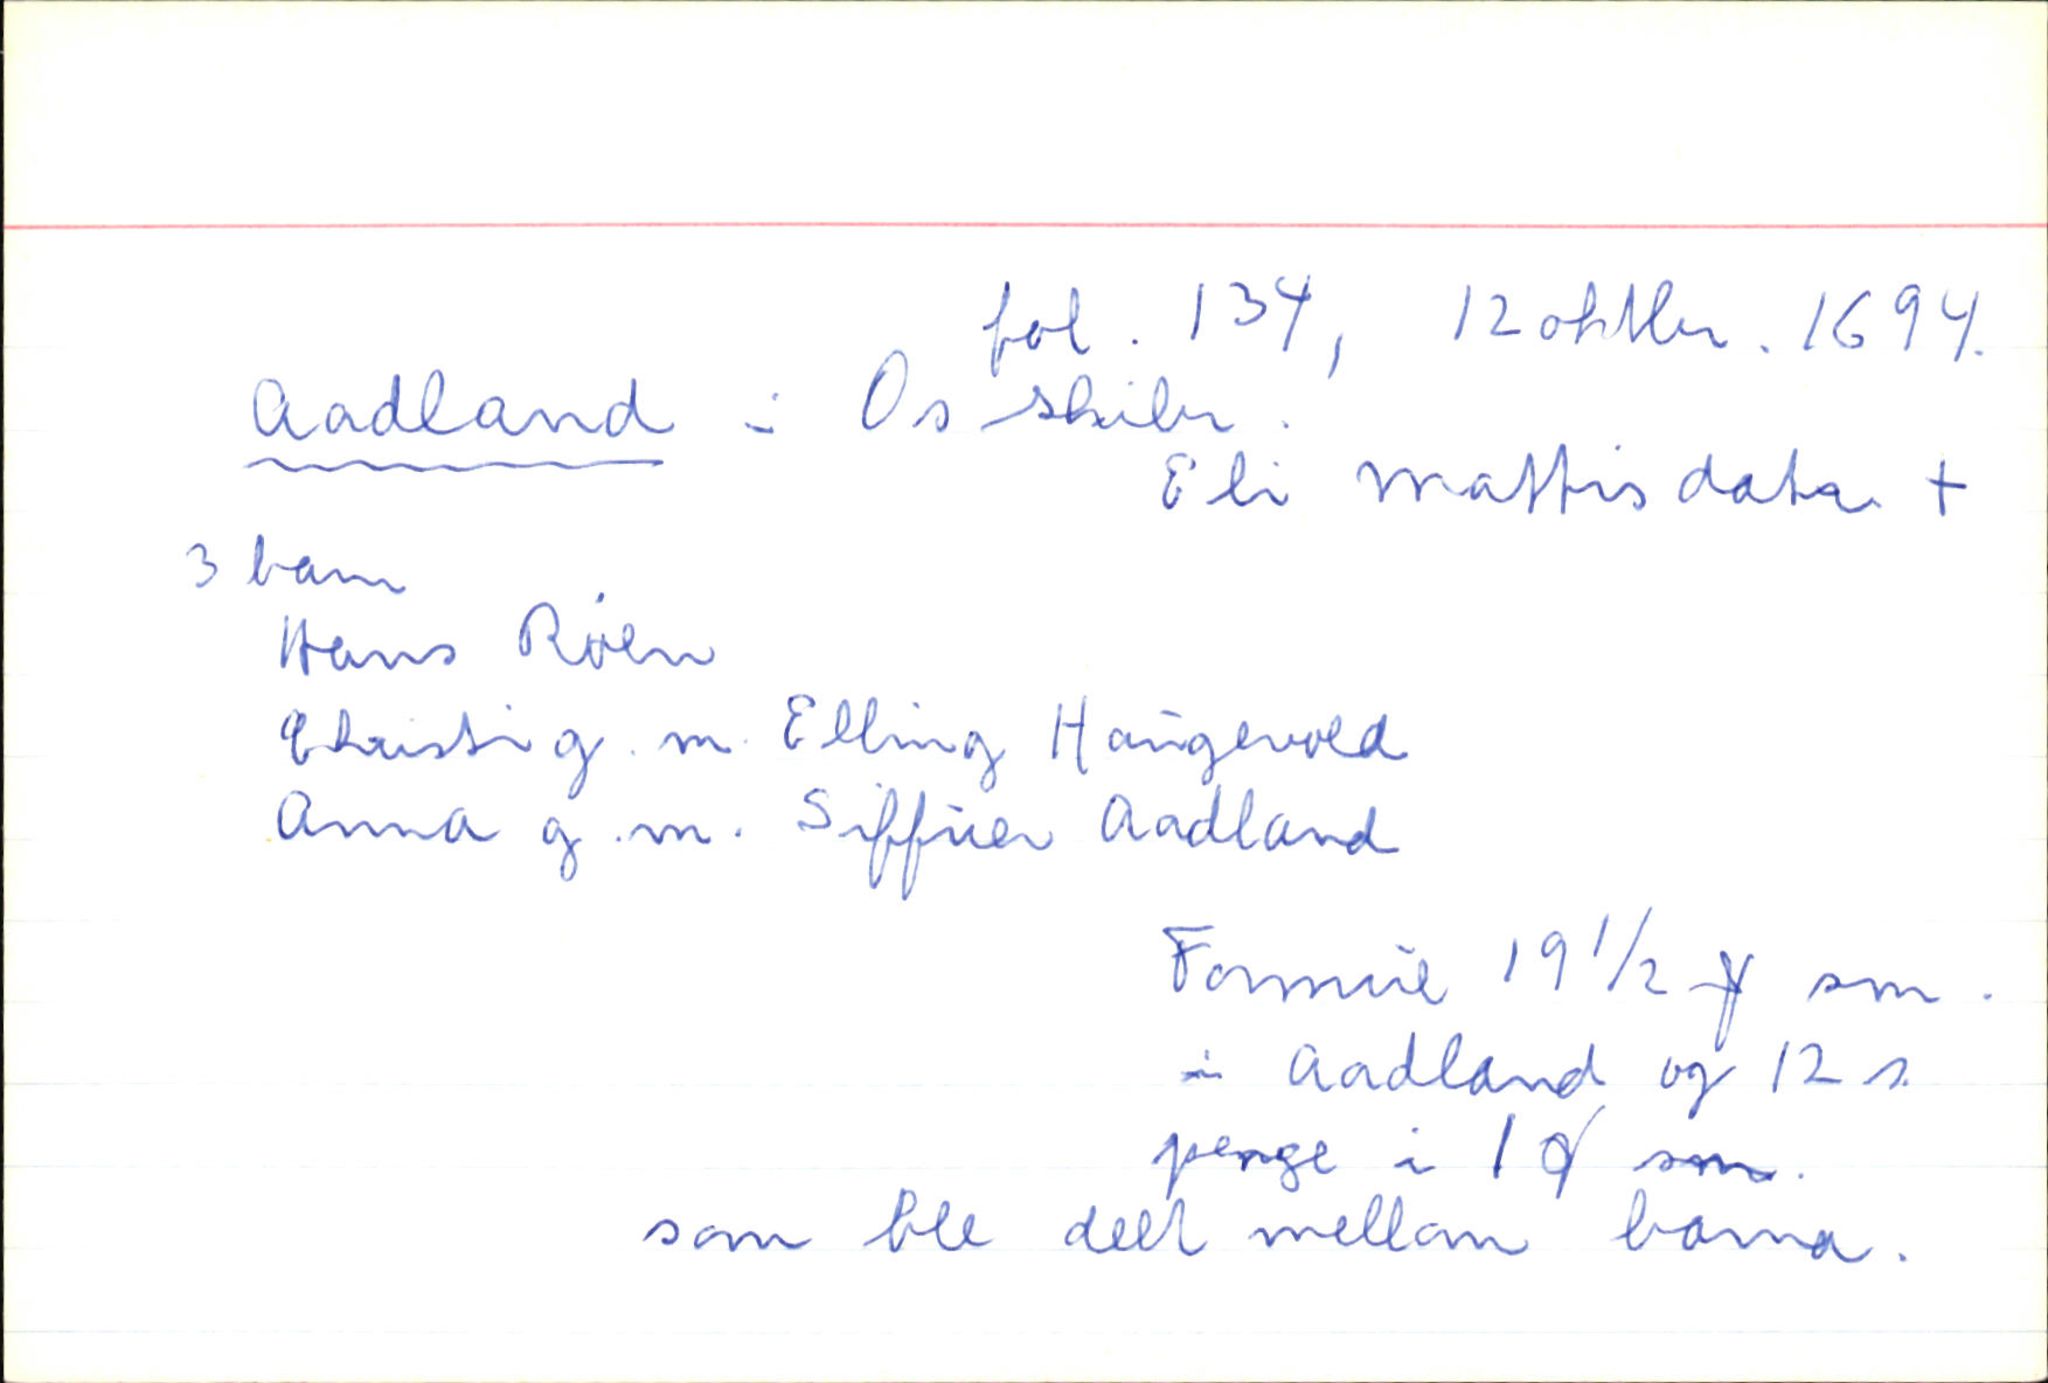 fol. 134, 12 oktbr. 1694.
Aadland i Os skibr.
Eli Mattisdatter +
3 barn
Hans Röen
Christi g. m. Elling Haugevold
Anna g. m. Siffuer Aadland
Formue 19 1/2 sm.
i Aadland og 12 s
penge i 1 sm.
som ble delt mellom barna.